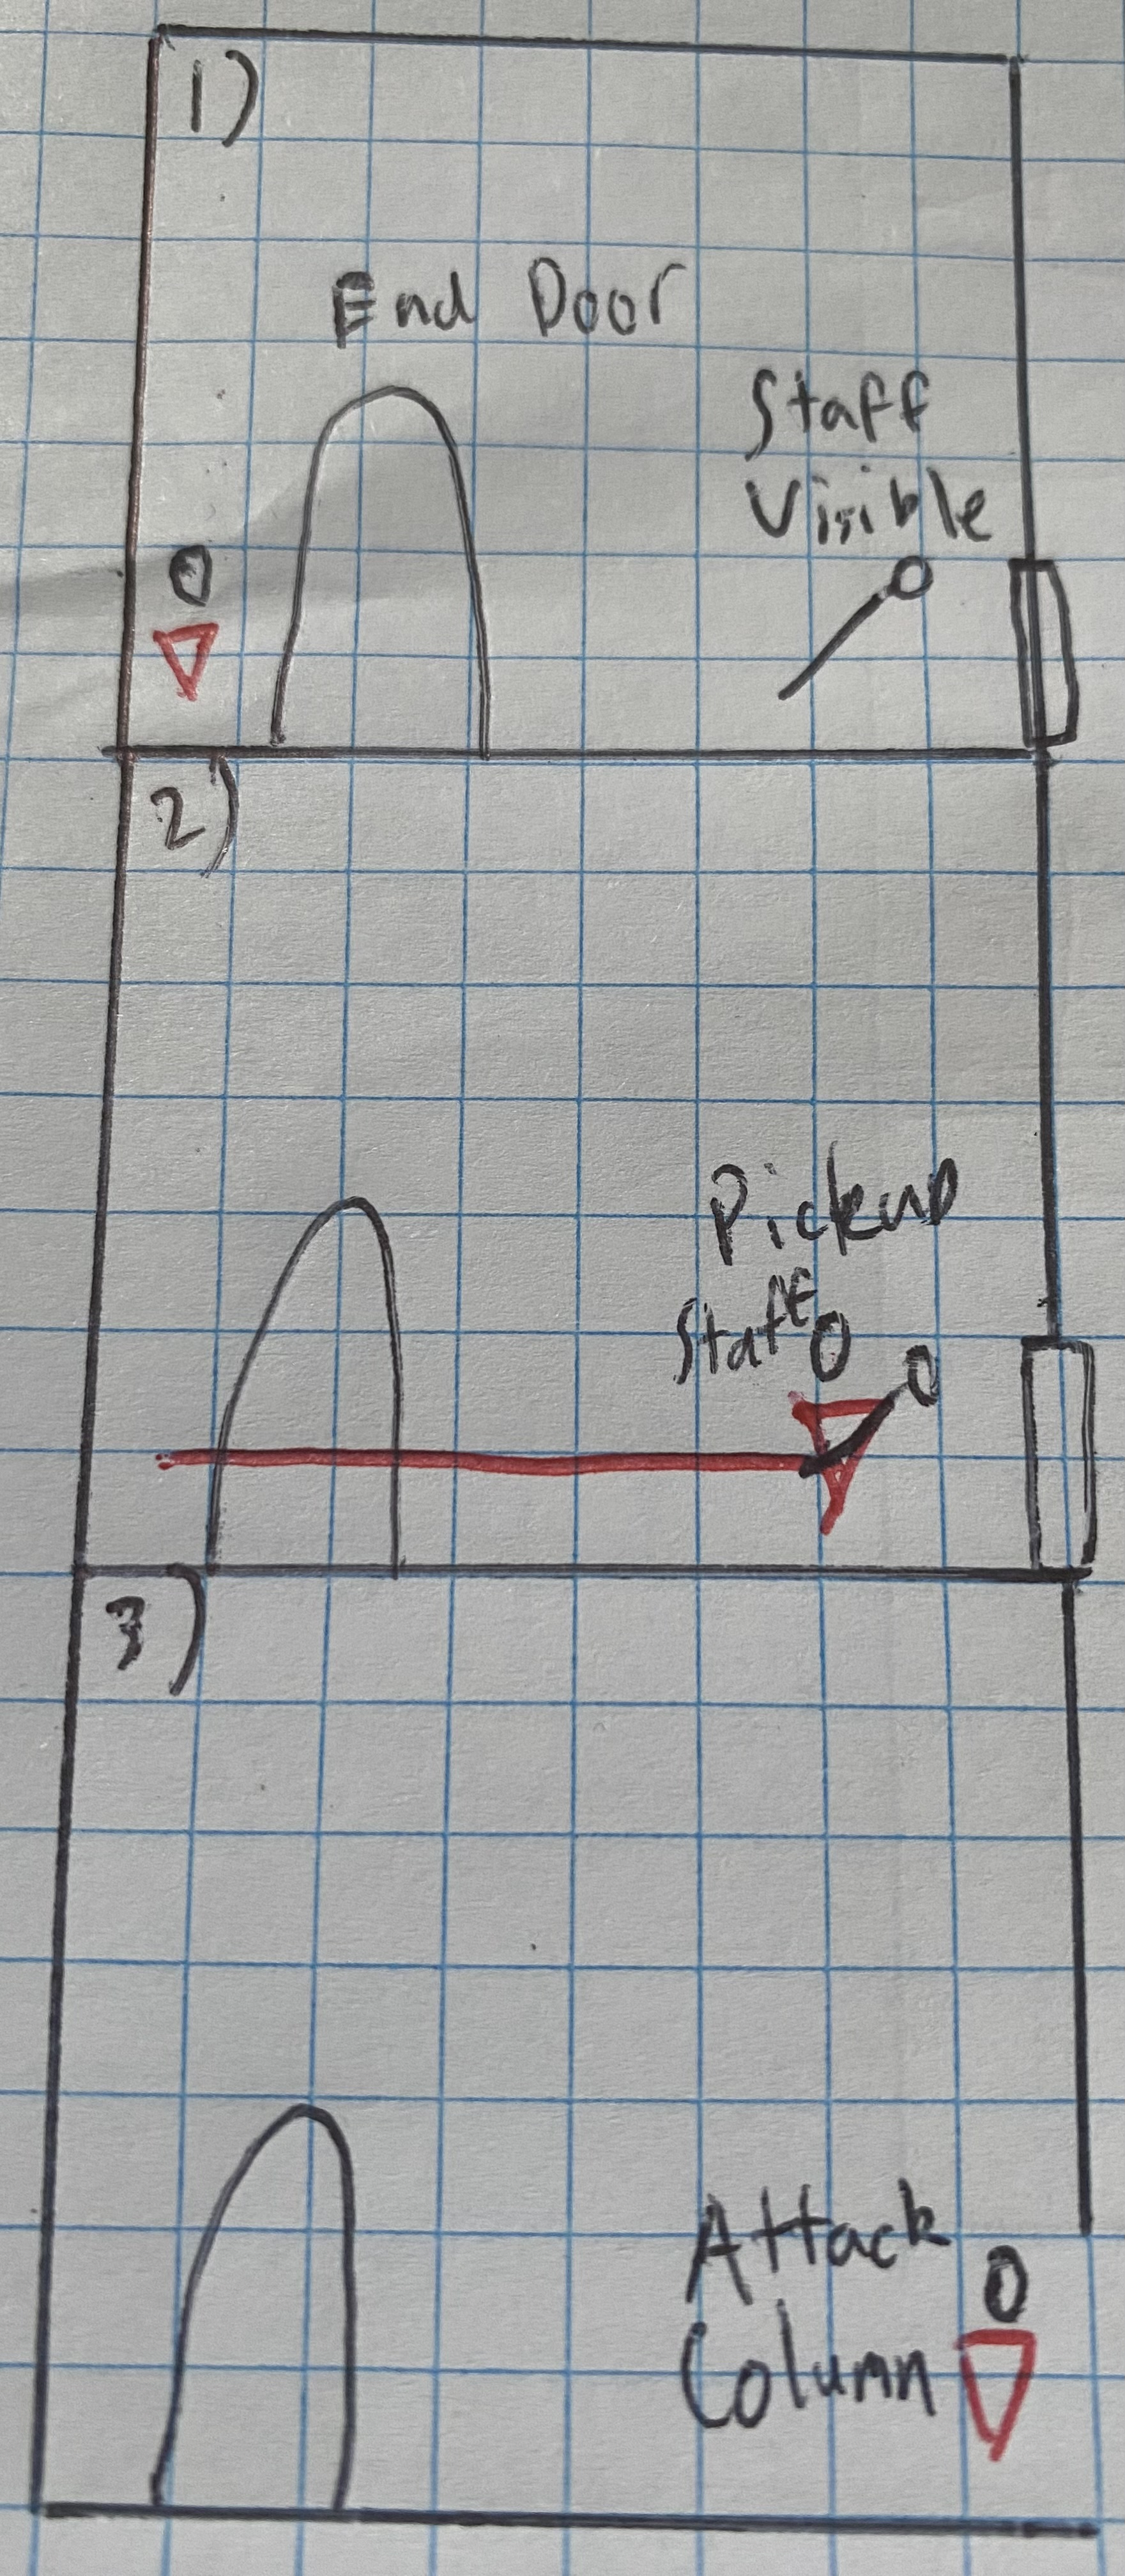 1)
End Door
Staff
Visible
2)
Pickup
Staff
3)
Attack
Column